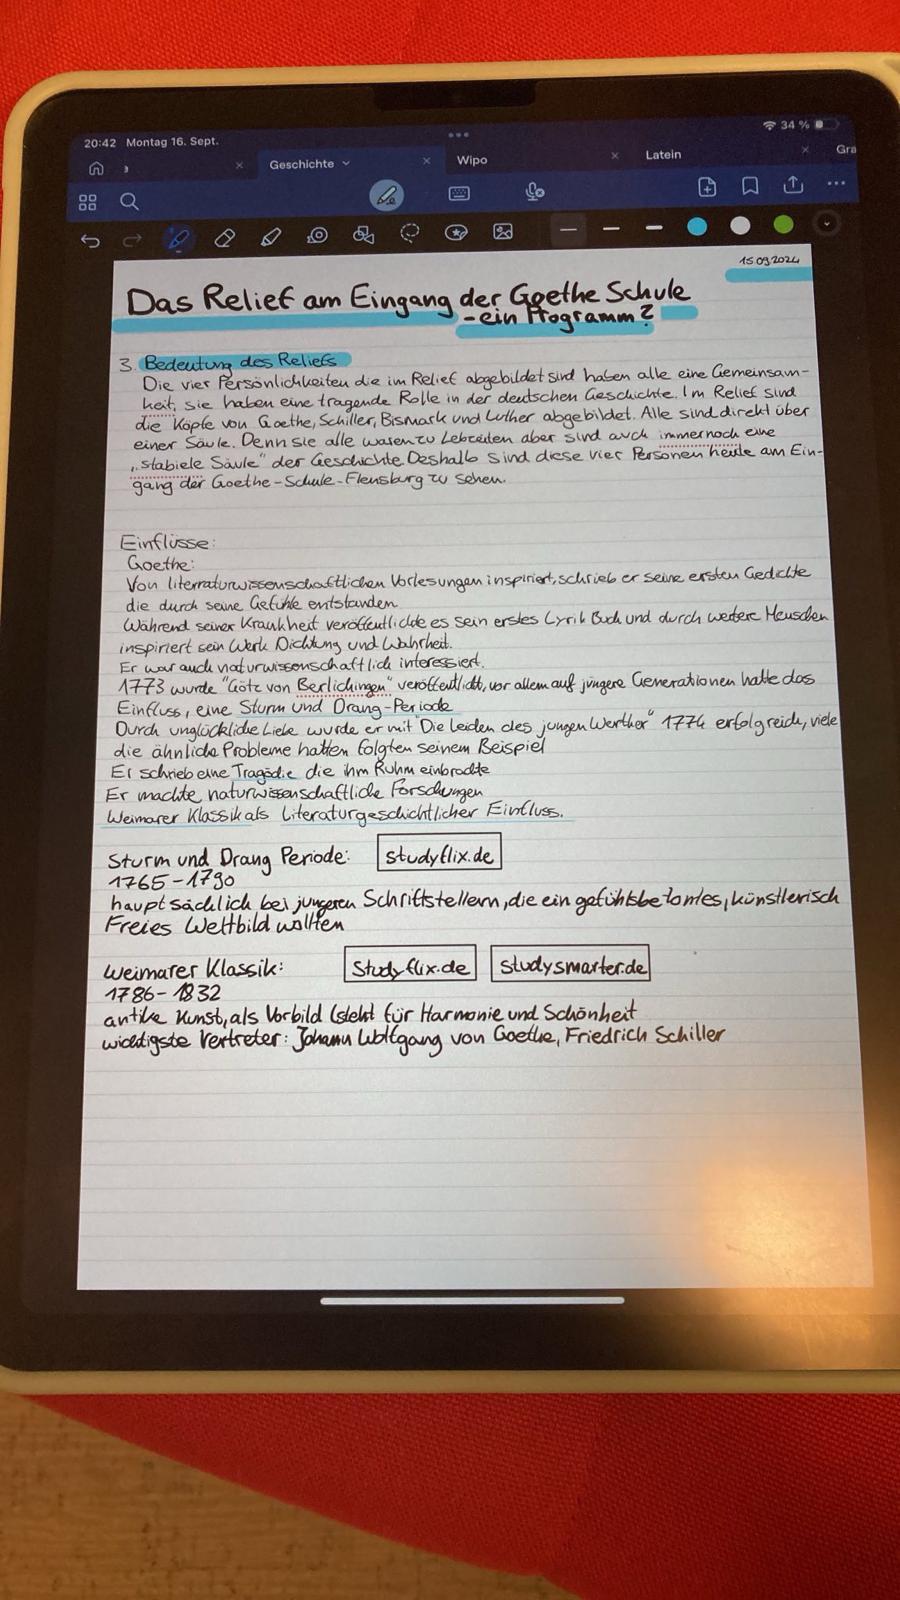 20:42 Montag 16. Sept.
34 %
Geschichte
Wipo
Latein
Gra
15.09.2024
Das Relief am Eingang der Goethe Schule
-ein Programm?
3. Bedeutung des Reliefs
Die vier Persönlichkeiten die im Relief abgebildet sind haben alle eine Gemeinsam-
keit, sie haben eine tragende Rolle in der deutschen Geschichte. Im Relief sind
die Köpfe von Goethe, Schiller, Bismark und Luther abgebildet. Alle sind direkt über
einer Säule. Denn sie alle waren zu Lebzeiten aber sind auch immernoch eine
„stabiele Säule" der Geschichte. Deshalb sind diese vier Personen heute am Ein-
gang der Goethe-Schule-Flensburg zu sehen.
Einflüsse:
Goethe:
Von literraturwissenschaftlichen Vorlesungen inspiriert, schrieb er seine ersten Gedichte
die durch seine Gefühle entstanden.
Während seiner Krankheit veröffentlichte es sein erstes Lyrik Buch und durch weitere Menschen
inspiriert sein Werk Dichtung und Wahrheit.
Er war auch naturwissenschaftlich interessiert.
1773 wurde "Götz von Berlichingen" veröffentlicht, vor allem auf jüngere Generationen hatte das
Einfluss, eine Sturm und Drang-Periode
Durch unglückliche Liebe wurde er mit "Die Leiden des jungen Werther" 1774 erfolgreich, viele
die ähnliche Probleme hatten folgten seinem Beispiel
Er schrieb eine Tragödie die ihm Ruhm einbrachte
Er machte naturwissenschaftliche Forschungen
Weimarer Klassik als Literaturgeschichtlicher Einfluss.
Sturm und Drang Periode: studyflix.de
1765-1790
hauptsächlich bei jungeren Schriftstellern, die ein gefühlsbetontes, künstlerisch
Freies Weltbild wollten
Weimarer Klassik: Studyflix.de studysmarter.de
1786-1832
antike Kunst, als Vorbild (steht für Harmonie und Schönheit
wichtigste Vertreter: Johann Wolfgang von Goethe, Friedrich Schiller